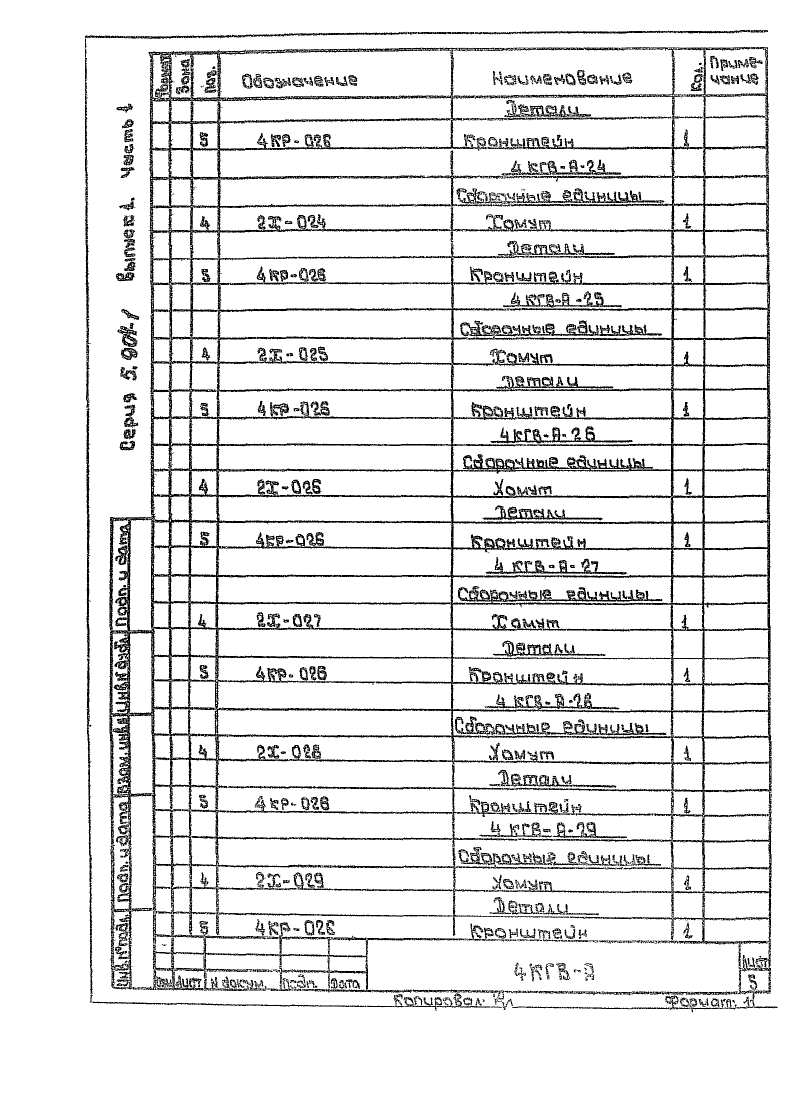 Серия 5.904-1 выпуск 1. часть 1
Формат Зона Поз. Обозначение Наименование Кол. Приме-
чание
Детали
5 4КР-026 Кронштейн 1
4КГВ-А-24
Сборочные единицы
4 2Х-024 Хомут 1
Детали
5 4КР-026 Кронштейн 1
4КГВ-А-25
Сборочные единицы
4 2Х-025 Хомут 1
Детали
5 4КР-026 Кронштейн 1
4КГВ-А-26
Сборочные единицы
4 2Х-026 Хомут 1
Детали
5 4КР-026 Кронштейн 1
4КГВ-А-27
Сборочные единицы
4 2Х-027 Хомут 1
Детали
5 4КР-026 Кронштейн 1
4КГВ-А-28
Сборочные единицы
4 2Х-028 Хомут 1
Детали
5 4КР-026 Кронштейн 1
4КГВ-А-29
Сборочные единицы
4 2Х-029 Хомут 1
Детали
5 4КР-026 Кронштейн 1
Инв.№подл. Подп. и дата Взам. инв.№ Инв.№дубл. Подп. и дата
Изм Лист № докум. Подп. Дата
4КГВ-А
Лист
5
Копировал: Формат: 11